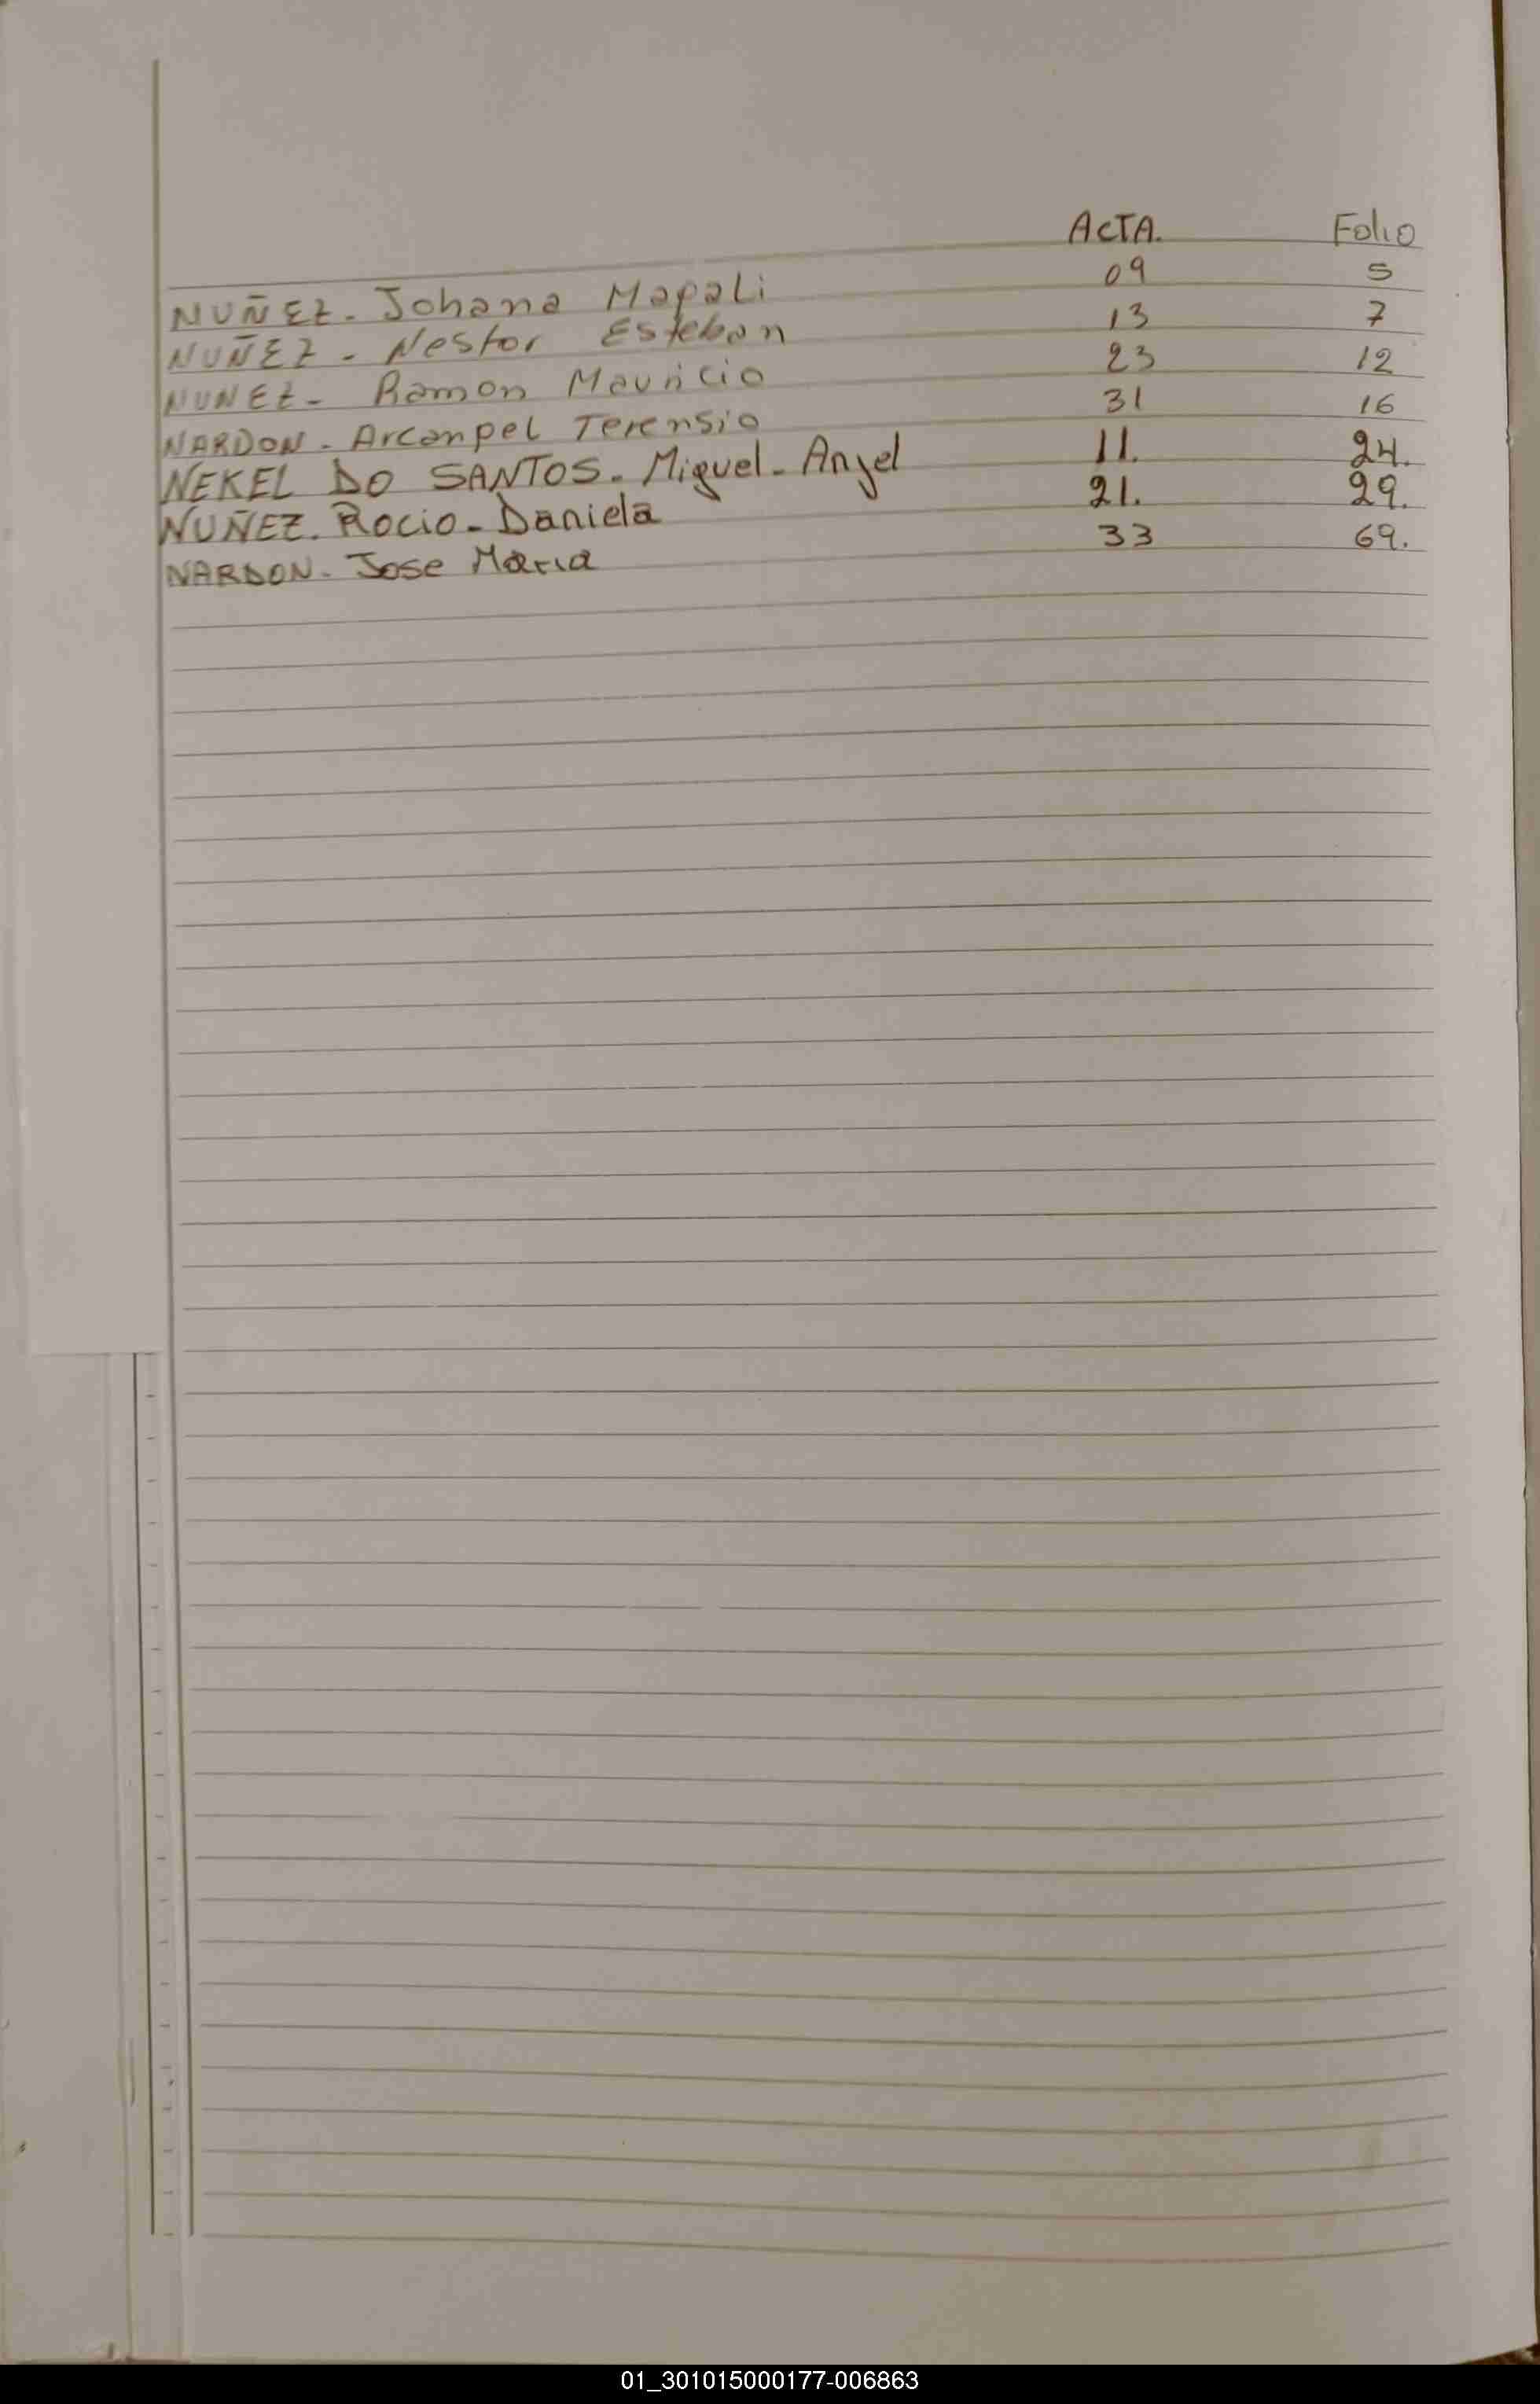 ACTA. Folio
NUÑEZ. Johana Magali 09 5
NUÑEZ - Nestor Esteban 13 7
NUNEZ - Ramon Mauricio 23 12
NARDON - Arcangel Terensio 31 16
NEKEL DO SANTOS. Miguel - Angel 11. 24.
NUÑEZ. Rocio - Daniela 21. 29.
NARDON. Jose Maria 33 69.
01_301015000177-006863